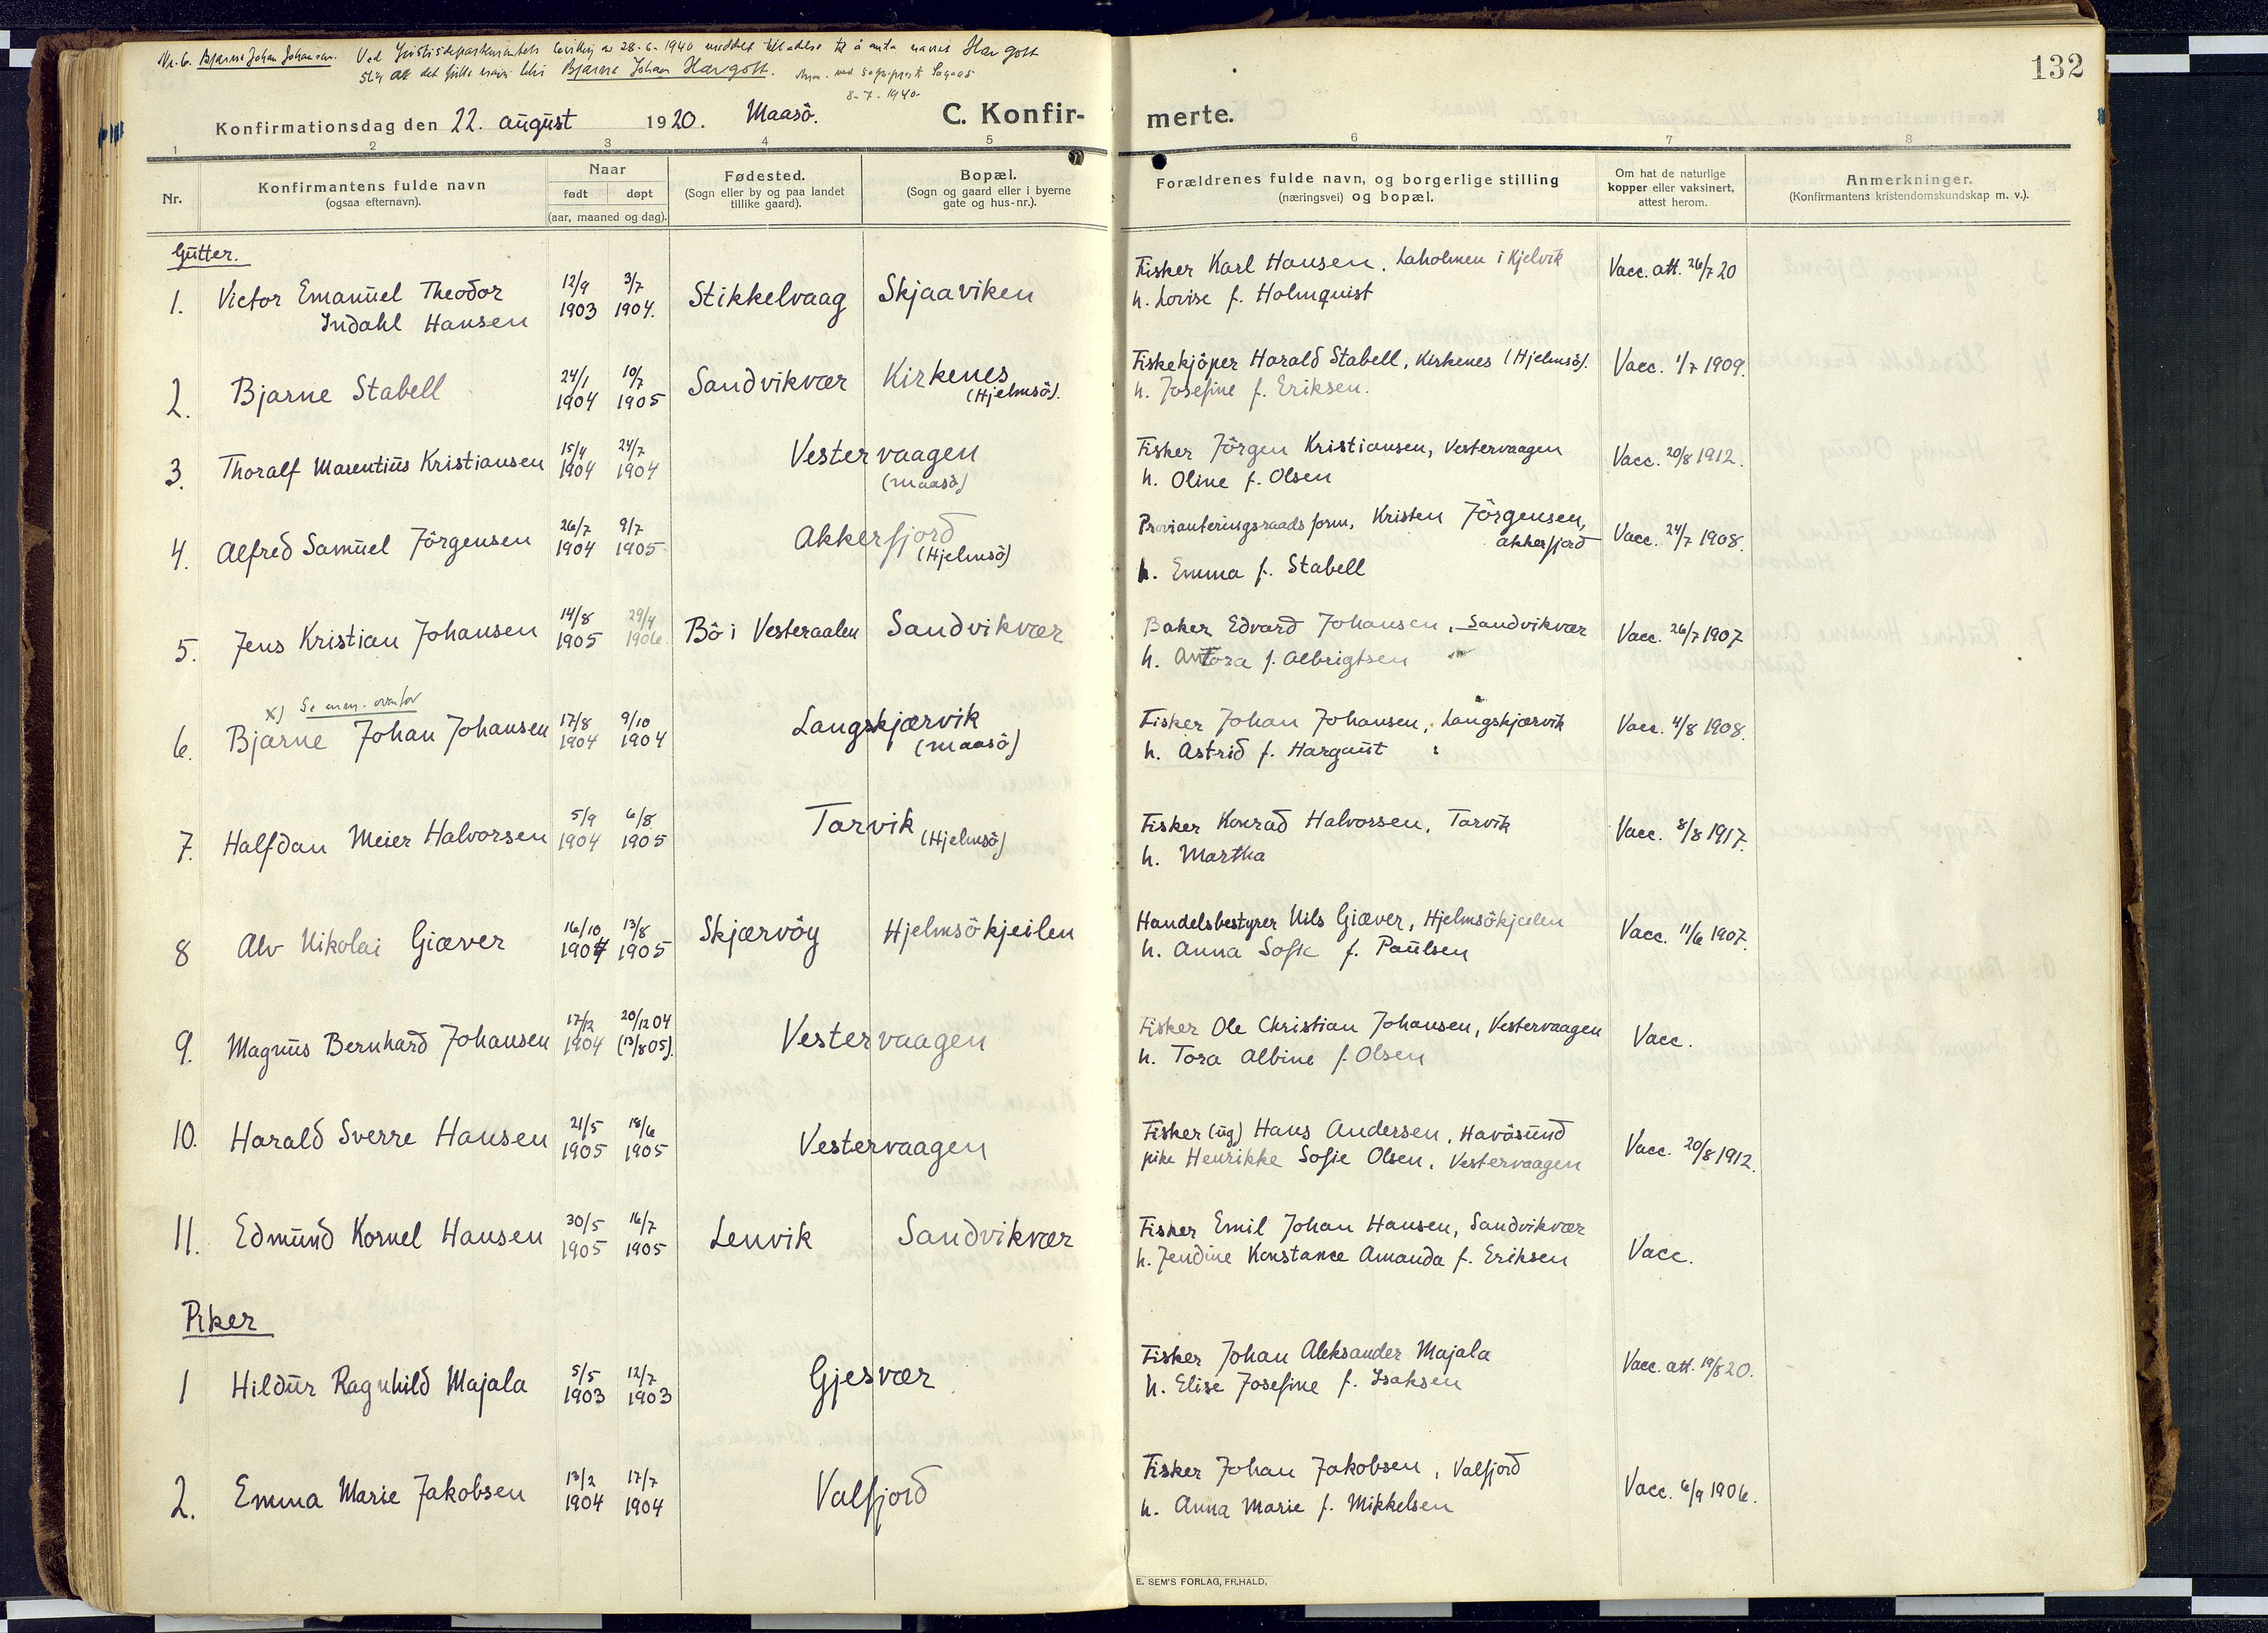 Nr. 6. Bjarne Johan Johansen. Ved Justisdepartementets bevilling av 28-6-1940 meddelt tilladelse til å anta navnet Hargott
slik at det fulle navn blir Bjarne Johan Hargott.
8-7-1940
132
Konfirmationsdag den 22. august 1920. Maasö. C. Konfir-
merte.
1 2 3 4 5
6 7 8
Nr.
Konfirmantens fulde navn
(ogsaa efternavn).
Naar
født døpt
(aar, maaned og dag).
Fødested.
(Sogn eller by og paa landet
tillike gaard).
Bopæl.
(Sogn og gaard eller i byerne
gate og hus-nr.).
Forældrenes fulde navn, og borgerlige stilling
(næringsvei) og bopæl.
Om hat de naturlige
kopper eller vaksinert,
attest herom.
Anmerkninger.
(Konfirmantens kristendomskundskap m. v.).
Gutter.
1. Victor Emanuel Theodor 12/9 3/7 Stikkelvaag Skjaaviken Fisker Karl Hansen, Laholmen i Kjelvik Vacc. att. 26/7 20
Indahl Hansen 1903 1904. h. Lovise f. Holmquist
2. Bjarne Stabell 24/1 10/7 Sandvikvær Kirkenes Fiskekjöper Harald Stabell, Kirkenes (Hjelmsö). Vacc. 1/7 1909.
1904 1905 (Hjelmsö). h. Josefine f. Eriksen.
3. Thoralf Marentius Kristiansen 15/4 24/7 Vestervaagen Fisker Jörgen Kristiansen, Vestervaagen Vacc. 20/8 1912.
1904 1904 (Maasö) h. Oline f. Olsen
4. Alfred Samuel Jörgensen 26/7 9/7 Akkerfjord Provianteringsraads form. Kristen Jörgensen, Vacc. 24/7 1908.
1904 1905 (Hjelmsö) Akkerfjord
h. Emma f. Stabell
5. Jens Kristian Johansen 14/8 29/4 Bö i Vesteraalen Sandvikvær Baker Edvard Johansen, Sandvikvær Vacc. 26/7 1907
1905 1906. h. Antora f. Albrigtsen
x) Se anm. ovenfor
6. Bjarne Johan Johansen 17/8 9/10 Langskjærvik Fisker Johan Johansen, Langskjærvik Vacc. 4/8 1908.
1904 1904 (Maasö) h. Astrid f. Hargaut
7. Halfdan Meier Halvorsen 5/9 6/8 Tarvik Fisker Konrad Halvorsen, Tarvik Vacc. 8/8 1917.
1904 1905 (Hjelmsö) h. Martha
8 Alv Nikolai Giæver 16/10 13/8 Skjærvöy Hjelmsökjeilen Handelsbestyrer Nils Giæver, Hjelmsökjeilen Vacc. 11/6 1907.
1904 1905 h. Anna Sofie f. Paulsen
9. Magnus Bernhard Johansen 17/12 20/12 04 Vestervaagen Fisker Ole Christian Johansen, Vestervaagen Vacc.
1904 (13/8 05). h. Tora Albine f. Olsen
10. Harald Sverre Hansen 21/5 18/6 Vestervaagen Fisker (ug) Hans Andersen, Havösund Vacc. 20/8 1912.
1905 1905 pike Henrikke Sofie Olsen, Vestervaagen
11. Edmund Kornel Hansen 30/5 16/7 Lenvik Sandvikvær Fisker Emil Johan Hansen, Sandvikvær Vacc.
1905 1905 h. Jendine Konstance Amanda f. Eriksen
Piker
1 Hildur Ragnhild Majala 5/5 12/7 Gjesvær Fisker Johan Aleksander Majala Vacc. att. 19/8 20.
1903 1903 h. Elise Josefine f. Isaksen
2. Emma Marie Jakobsen 13/2 17/7 Valfjord Fisker Johan Jakobsen, Valfjord Vacc. 6/9 1906.
1904 1904 h. Anna Marie f. Mikkelsen
E. SEM'S FORLAG, FR.HALD,